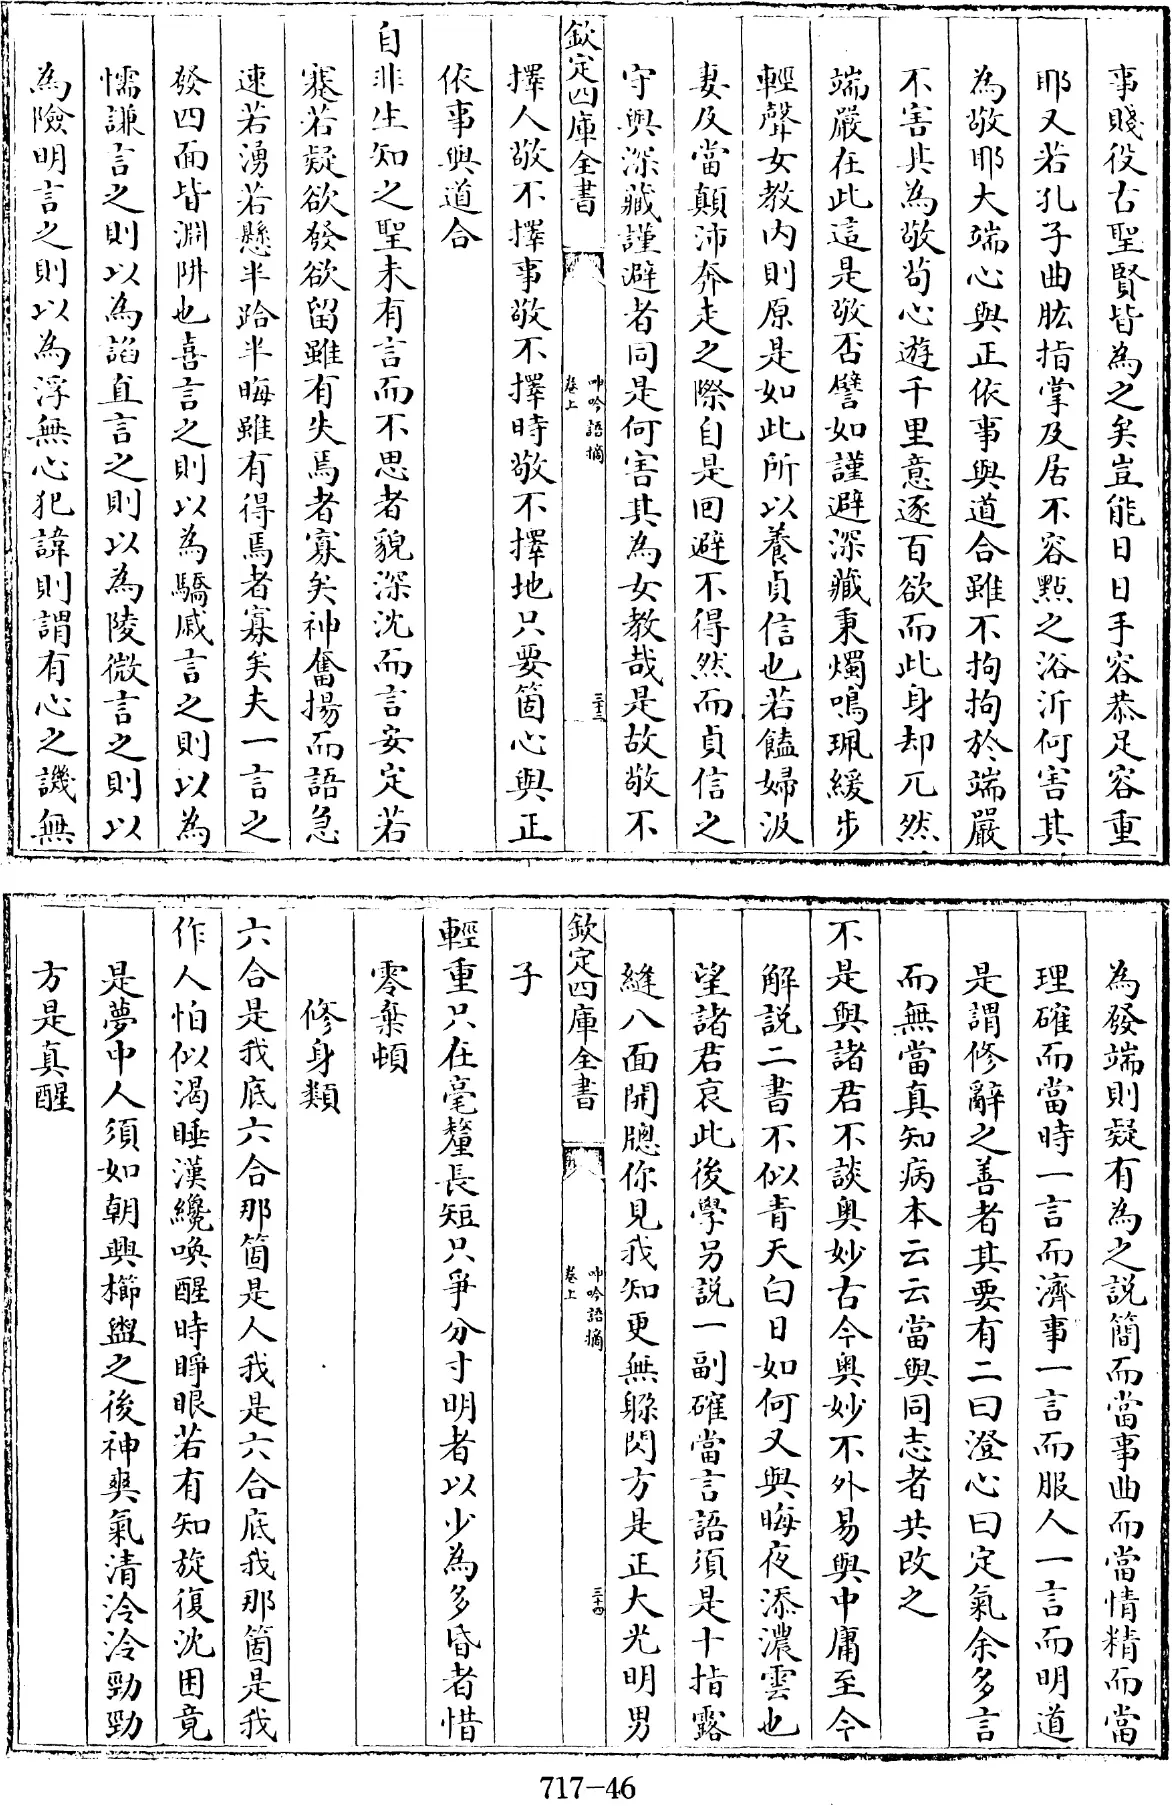 事賤役古聖賢皆為之矣豈能日日手容恭足容重
耶又若孔子曲肱指掌及居不容㸃之浴沂何害其
為敬耶大端心與正依事與道合雖不拘拘於端嚴
不害其為敬茍心遊千里意逐百欲而此身却兀然
端嚴在此這是敬否譬如謹避深藏秉燭鳴珮緩步
輕聲女教内則原是如此所以養貞信也若饁婦汲
妻及當顛沛奔走之際自是回避不得然而貞信之
守與深藏謹避者同是何害其為女教哉是故敬不
欽定四庫全書
呻吟語摘
卷上
三十三
擇人敬不擇事敬不擇時敬不擇地只要箇心與正
依事與道合
自非生知之聖未有言而不思者貌深沈而言安定若
蹇若疑欲發欲留雖有失焉者寡矣神奮揚而語急
速若湧若懸半跲半晦雖有得焉者寡矣夫一言之
發四面皆淵阱也喜言之則以為驕戚言之則以為
懦謙言之則以為諂直言之則以為陵微言之則以
為險明言之則以為浮無心犯諱則謂有心之譏無
為發端則疑有為之説簡而當事曲而當情精而當
理確而當時一言而濟事一言而服人一言而明道
是謂修辭之善者其要有二曰澄心曰定氣余多言
而無當真知病本云云當與同志者共改之
不是與諸君不談奥妙古今奥妙不外易與中庸至今
解説二書不似青天白日如何又與晦夜添濃雲也
望諸君哀此後學另説一副確當言語須是十指露
縫八面開牕你見我知更無躱閃方是正大光明男
欽定四庫全書
呻吟語摘
卷上
三十四
子
輕重只在毫釐長短只爭分寸明者以少為多昏者惜
零棄頓
修身類
六合是我底六合那箇是人我是六合底我那箇是我
作人怕似渴睡漢纔喚醒時睜眼若有知旋復沈困竟
是夢中人須如朝興櫛盥之後神爽氣清泠泠勁勁
方是真醒
717-46